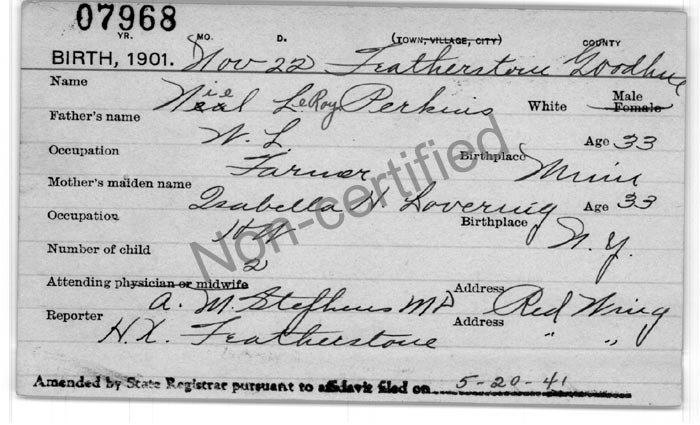 07968
YR. MO. D. (TOWN, VILLAGE, CITY) COUNTY
BIRTH, 1901. Nov 22 Featherstone Goodhue
Name Neal LeRoy Perkins White Male Female
Father's name W. L. Age 33
Occupation Farmer Birthplace Minn
Mother's maiden name Isabella H. Lovering Age 33
Occupation HW Birthplace N.Y.
Number of child 2
Attending physician or midwife A. M. Stephens MD Address Red Wing
Reporter H.X. Featherstone Address " "
Amended by State Registrar pursuant to affidavit filed on 5-20-41
Non-certified